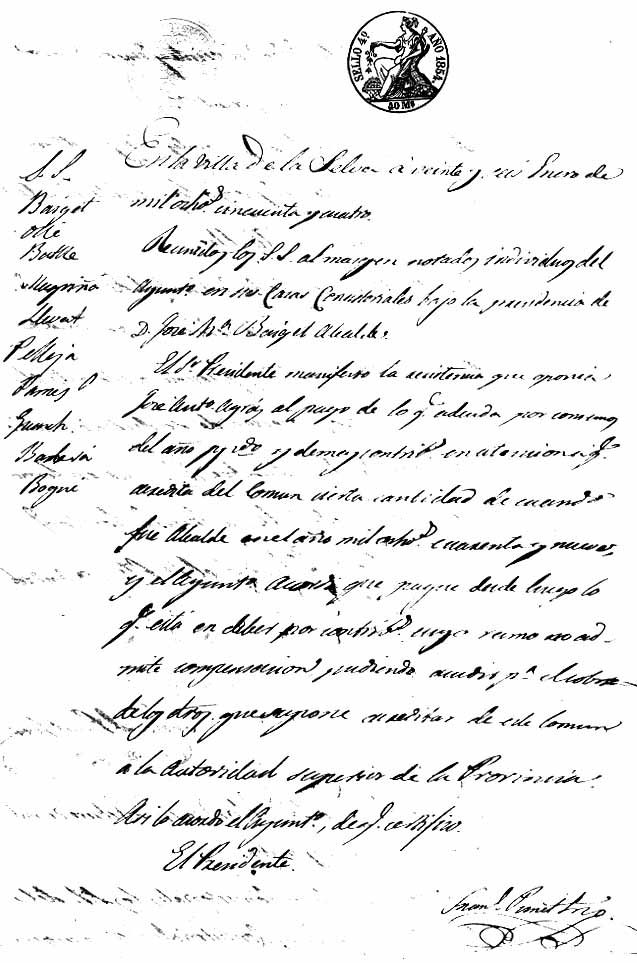 SELLO 4º AÑO 1854.
40 Mˢ
En la Villa de la Selva á veinte y seis Enero de
mil ochoˢ cincuenta y cuatro.
S. S.
Baiget
Olle
Batlle
Magriñá
Llevat
Pelleja
Bogue
Reunidos los S.S. al margen notados individuos del
Ayuntº en sus Casas Consistoriales bajo la presidencia de
D. José Mª Baiget Alcalde.
El Sº Presidente manifesto la resistencia que oponia
José Antº al pago de lo q. adeuda por consumos
del año pp.do y demas contrib.s en atencion á q.
acredita del Comun cierta cantidad de cuando
fué Alcalde en el año mil ochoˢ cuarenta y nueve,
y el Ayuntº acordó que pague desde luego lo
q. está en deber por contrib.s cuyo ramo no ad-
mite compensacion pudiendo acudir pª el cobro
de los que supone acreditar de este Comun
a la autoridad superior de la Provincia.
Asi lo acordó el Ayuntº, de q. certifico.
El Presidente.
Fran.º